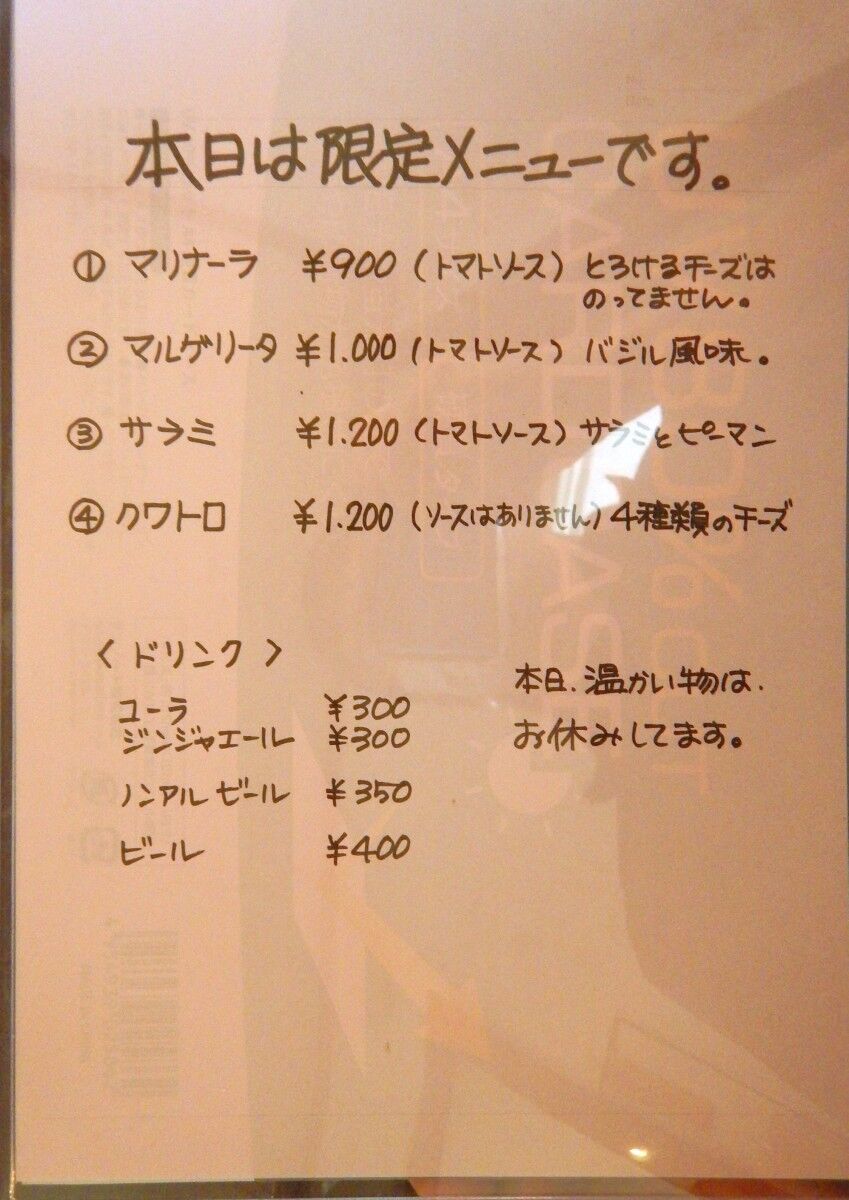 本日は限定メニューです。
① マリナーラ ¥900 (トマトソース) とろけるチーズは
のってません。
② マルゲリータ ¥1.000 (トマトソース) バジル風味。
③ サラミ ¥1.200 (トマトソース) サラミとピーマン
④ クワトロ ¥1.200 (ソースはありません) 4種類のチーズ
〈 ドリンク 〉
コーラ ¥300
ジンジャエール ¥300
ノンアルビール ¥350
ビール ¥400
本日、温かい物は、
お休みしてます。